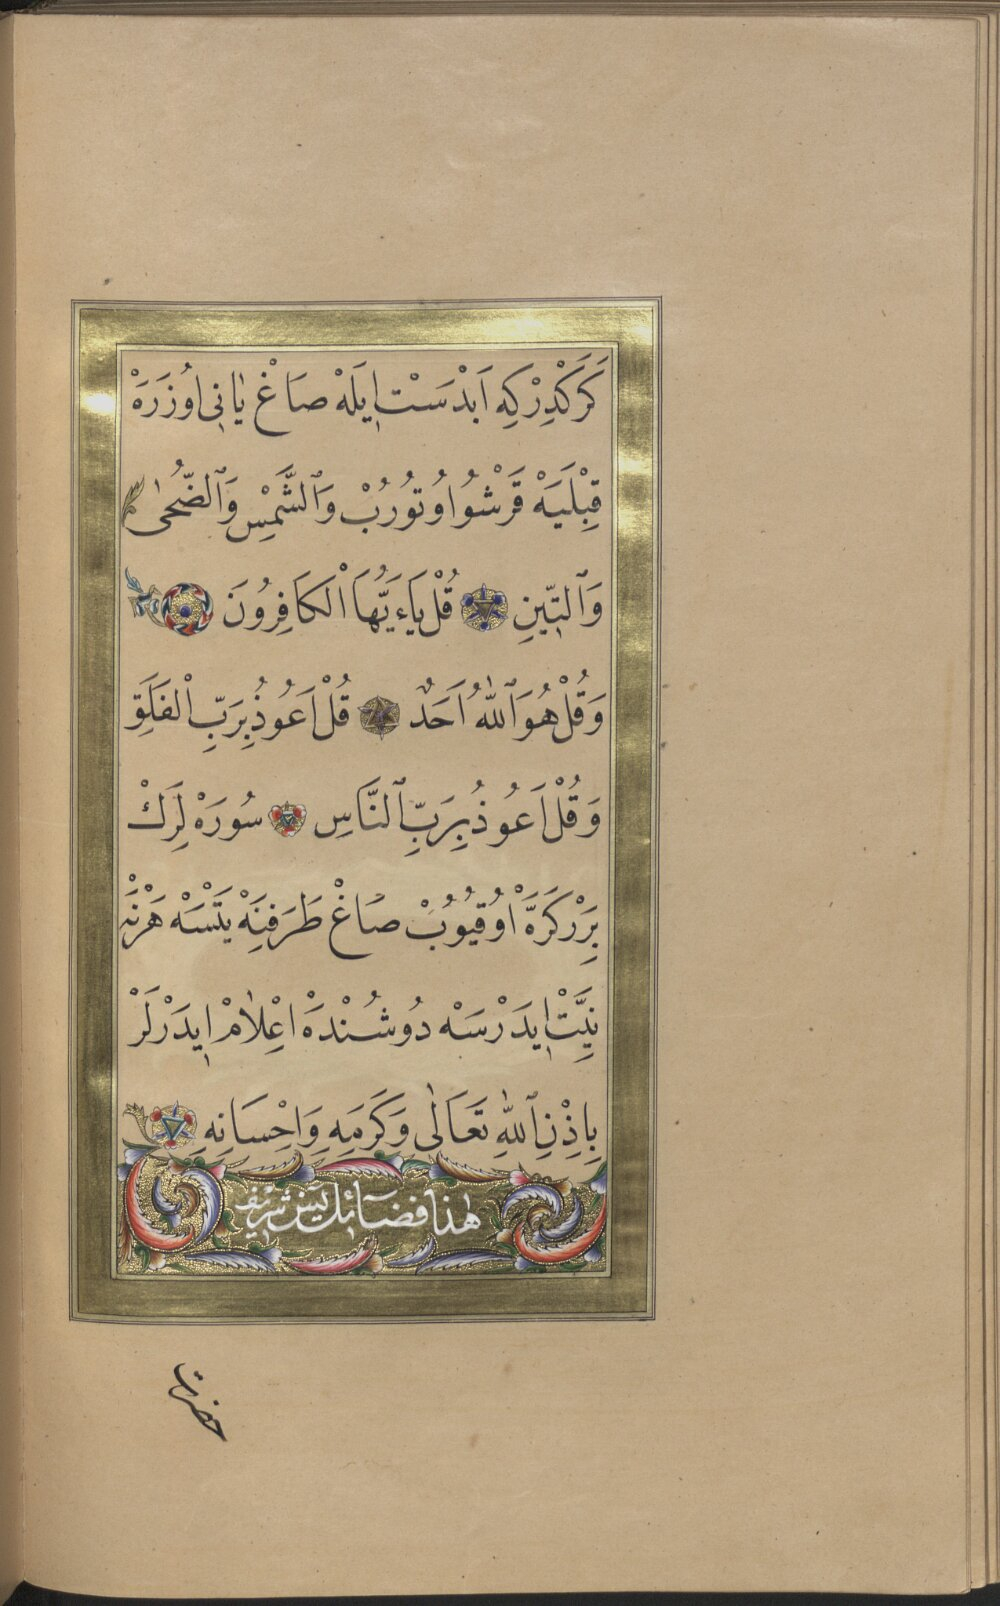 كَرَكْدِرْكِه اَبْدَسْت اِيلَهْ صَاغْ يَانِى اُوزَرَهْ
قِبْلَيَهْ قَرْشُو اُوتُورُبْ وَٱلشَّمْسِ وَٱلضُّحٰى
وَٱلتِّينِ قُلْ يَاءَيُّهَا ٱلْكَافِرُونَ
وَقُلْ هُوَ ٱللّٰهُ اَحَدٌ قُلْ اَعُوذُ بِرَبِّ ٱلْفَلَقِ
وَقُلْ اَعُوذُ بِرَبِّ ٱلنَّاسِ سُورَهْ لَرِكْ
بِرَرْ كَرَّهْ اُوقُيُوبْ صَاغْ طَرَفِنَهْ يَتْسَهْ هَرْنَهْ
نِيَّتْ اِيدَرْسَهْ دُوشُنْدَهْ اِعْلَامْ اِيدَرْلَرْ
بِاِذْنِ ٱللّٰهِ تَعَالٰى وَكَرَمِهِ وَاِحْسَانِهِ
هٰذَا فَضَائِلِ يٰسٓ شَرِيفْ
حضرت